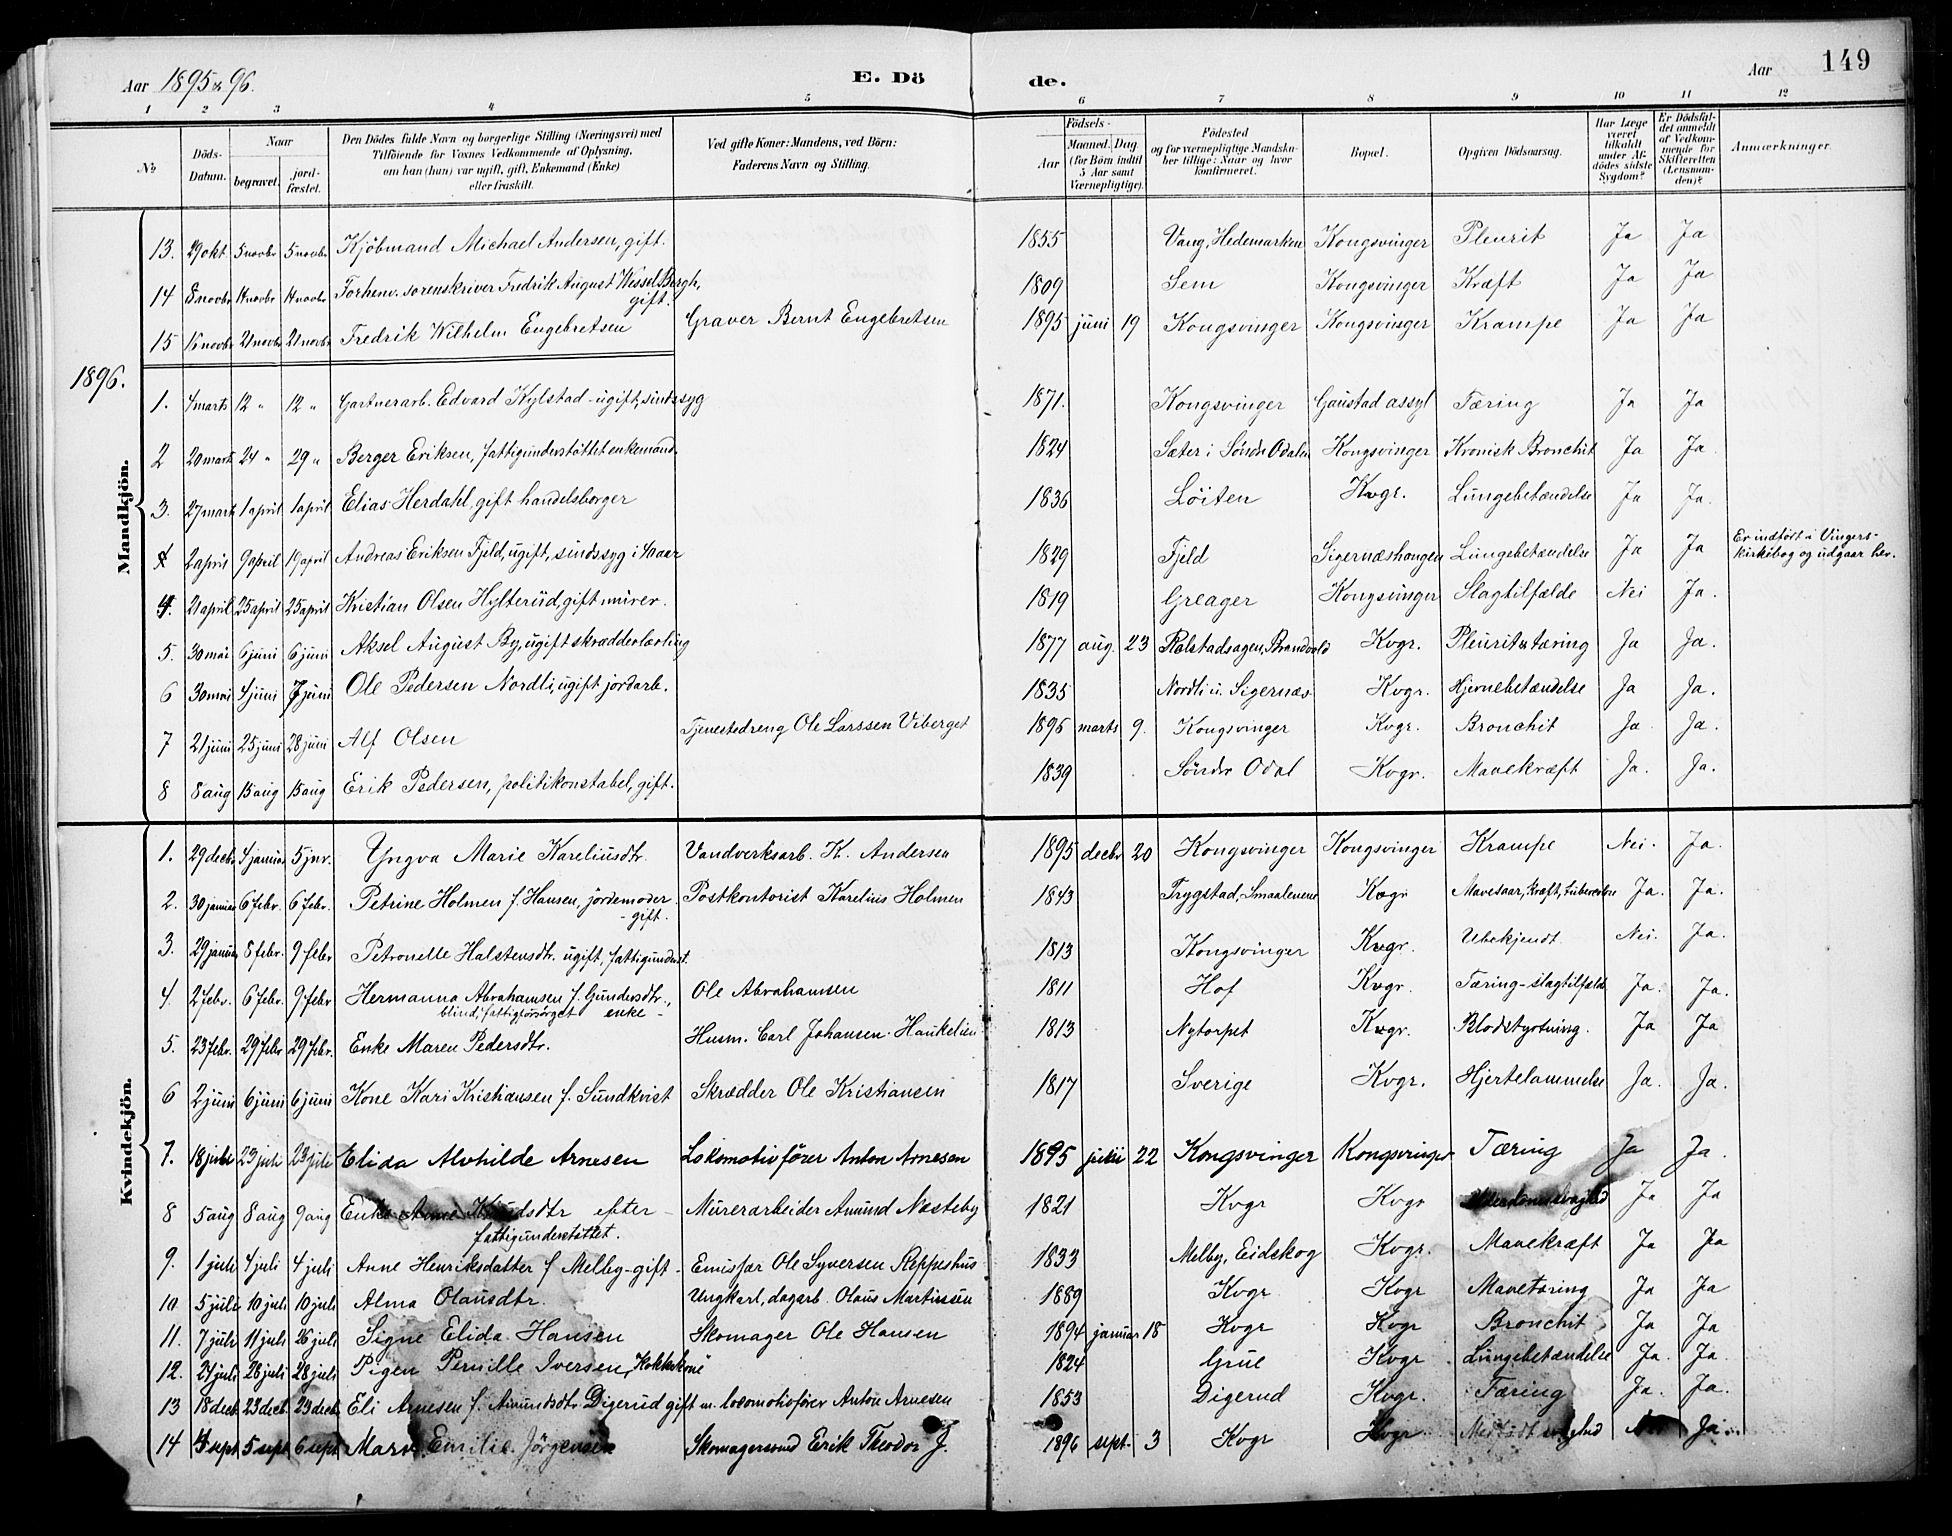 Aar 1895 & 96. E. Döde. Aar 149
1 2 3 4 5 6 7 8 9 10 11 12
№ Döds-Datum. Naar begravet. jord-fæstet. Den Dödes fulde Navn og borgerlige Stilling (Næringsvei) med Tilföiende for Voxnes Vedkommende af Oplysning, om han (hun) var ugift, gift, Enkemand (Enke) eller fraskilt. Ved gifte Koner: Mandens, ved Börn: Faderens Navn og Stilling. Födsels- Aar Maaned. Dag. (for Börn indtil 5 Aar samt Værnepligtige). Födested og for værnepligtige Mandskaber tillige: Naar og hvor konfirmeret. Bopæl. Opgiven Dödsaarsag. Har Læge været tilkaldt under Afdödes sidste Sygdom? Er Dödsfaldet anmeldt af Vedkommende for Skifteretten (Lensmanden)? Anmærkninger.
Mandkjön.
13. 29 okt 5 novbr 5 novbr Kjöbmand Michael Andersen, gift. 1855 Vang, Hedemarken Kongsvinger Pleurit Ja Ja
14 8 novbr 14 novbr 14 novbr Forhenv. sorenskriver Fredrik August Wessel Bergh, gift. 1809 Sem Kongsvinger Kræft Ja Ja
15 16 novbr 21 novbr 21 novbr Fredrik Wilhelm Engebretsen Graver Bernt Engebretsen 1895 juni 19 Kongsvinger Kongsvinger Krampe Ja Ja
1896.
1. 4 marts 12 " 12 " Gartnerarb. Edvard Kylstad - ugift, sindssyg 1871. Kongsvinger Gaustad assyl Tæring Ja Ja
2 20 mart 24 " 29 " Berger Eriksen, fattigunderstöttet enkemand. 1824 Sæter i Søndr Odalen Kongsvinger Kronisk Bronchit Ja Ja
3. 27 mart 1 april 1 april Elias Herdahl, gift handelsborger 1836 Löiten Kvgr. Lungebetændelse Ja Ja.
4 2 april 9 april 19 april Andreas Eriksen Fjeld, ugift, sindssyg i 40 aar 1829 Fjeld Sigernæshangen Lungebetændelse Ja Ja Er indfört i Vingers-kirkebog og udgaar her.
4. 21 april 25 april 25 april Kristian Olsen Hylterud, gift murer. 1819 Greager Kongsvinger Slagtilfælde Nei Ja.
5. 30 mai 6 juni 6 juni Aksel August By, ugift skrædderlærling 1877 aug. 23 Rolstadsagen, Brandvold Kvgr. Pleurit & tæring Ja Ja.
6 30 mai 4 juni 7 juni Ole Pedersen Nordli, ugift jordarb. 1835 Nordli u. Sigernæs Kvgr. Hjernebetændelse Ja Ja.
7 21 juni 25 juni 28 juni Alf Olsen Tjenestedreng Ole Larssen Viberget 1896 marts 9. Kongsvinger Kvgr. Bronchit Ja Ja.
8 8 aug 15 aug 15 aug Erik Pedersen, politikonstabel, gift. 1839 Söndr Odal Kvgr. Mavekræft Ja. Ja.
Kvindekjön.
1. 29 decbr 4 januar 5 jnr. Yngva Marie Kareliusdtr. Vandverksarb. K. Andersen 1895 decbr 20 Kongsvinger Kongsvinger Krampe Nei. Ja.
2. 30 januar 6 febr. 6 febr. Petrine Holmen f. Hansen, jördemoder - gift. Postkontorist Karelius Holmen 1843 Trygstad, Smaalenene Kvgr Mavesaar, Kræft, Ja. Ja.
3. 29 januar 8 febr. 9 febr Petronelle Halstensdtr. ugift, fattigunderst. 1813 Kongsvinger Kvgr. Ubekjendt. Nei. Ja.
4. 2 febr. 6 febr. 9 febr Hermanna Abrahamsen f. Gundersdtr., blind, fattigforsörget enke - Ole Abrahamsen 1811 Hof Kvgr. Tæring - slagtilfælde Ja. Ja.
5. 23 febr. 29 febr. 29 febr. Enke Maren Pedersdtr. Husm. Carl Johansen Haukelien 1813 Nytorpet Kvgr. Blodstyrtning. Ja Ja
6 2 juni 6 juni 6 juni Kone Kari Kristiansen f. Sundkvist Skrædder Ole Kristiansen 1817 Sverige Kvgr. Hjertelammelse Ja. Ja.
7. 18 juli 23 juli 23 juli Elida Alvhilde Arnesen Lokomotivförer Anton Arnesen 1895 juli 22 Kongsvinger Kongsvinger Tæring Ja Ja.
8 5 aug 8 aug 9 aug Enke Anne Knudsdtr efter - fattigunderstöttet. Murerarbeider Amund Næsteby 1821 Kvgr Kvgr Alderdomssvaghed Ja Ja
9. 1 juli 4 juli 4 juli Anne Henriksdatter f Melby - gift - Emissær Ole Syversen Reppeshus 1833 Melby, Eidskog Kvgr. Mavekræft Ja Ja
10. 5 juli 10 juli 10 juli Alma Olausdtr. Ungkarl, dagarb. Olaus Martinsen 1889 Kvgr Kvgr Mavetæring Ja Ja
11. 7 juli 11 juli 26 juli Signe Elida Hansen Skomager Ole Hansen 1894 januar 18 Kvgr Kvgr Bronchit Ja Ja
12. 24 juli 28 juli 28 juli Pigen Pernille Iversen, Kokkekone 1824 Grue Kvgr Lungebetændelse Ja. Ja.
13 18 decb. 23 decb. 23 decb. Eli Arnesen f. Amundsdtr Digerud gift m. locomotivförer Anton Arnesen 1853 Digerud Kvgr. Tæring Ja. Ja.
14 4 sept 5 sept 6 sept Marn Emilie Jörgensen Skomagersvend Erik Theodor J. 1896 sept. 3 Kvgr Kvgr Nei Ja.